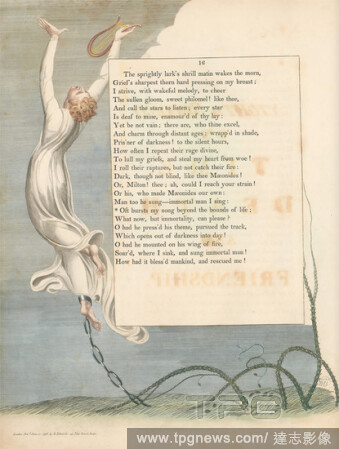 16
The sprightly lark's shrill matin wakes the morn,
Grief's sharpest thorn hard pressing on my breast;
I strive, with wakeful melody, to cheer
The sullen gloom, sweet philomel! like thee,
And call the stars to listen: every star
Is deaf to mine, enamour'd of thy lay:
Yet be not vain; there are, who thine excel,
And charm through distant ages: wrapp'd in shade,
Pris'ner of darkness! to the silent hours,
How often I repeat their rage divine,
To lull my griefs, and steal my heart from woe!
I roll their raptures, but not catch their fire:
Dark, though not blind, like thee Mæonides!
Or, Milton! thee; ah, could I reach your strain!
Or his, who made Mæonides our own:
Man too he sung—immortal man I sing:
* Oft bursts my song beyond the bounds of life;
What now, but immortality, can please!
O had he press'd his theme, pursued the track,
Which opens out of darkness into day!
O had he mounted on his wing of fire,
Soar'd, where I sink, and sung immortal man!
How had it bless'd mankind, and rescued me!
FRIENDSHIP
TPG
www.tpgnews.com / 達志影像